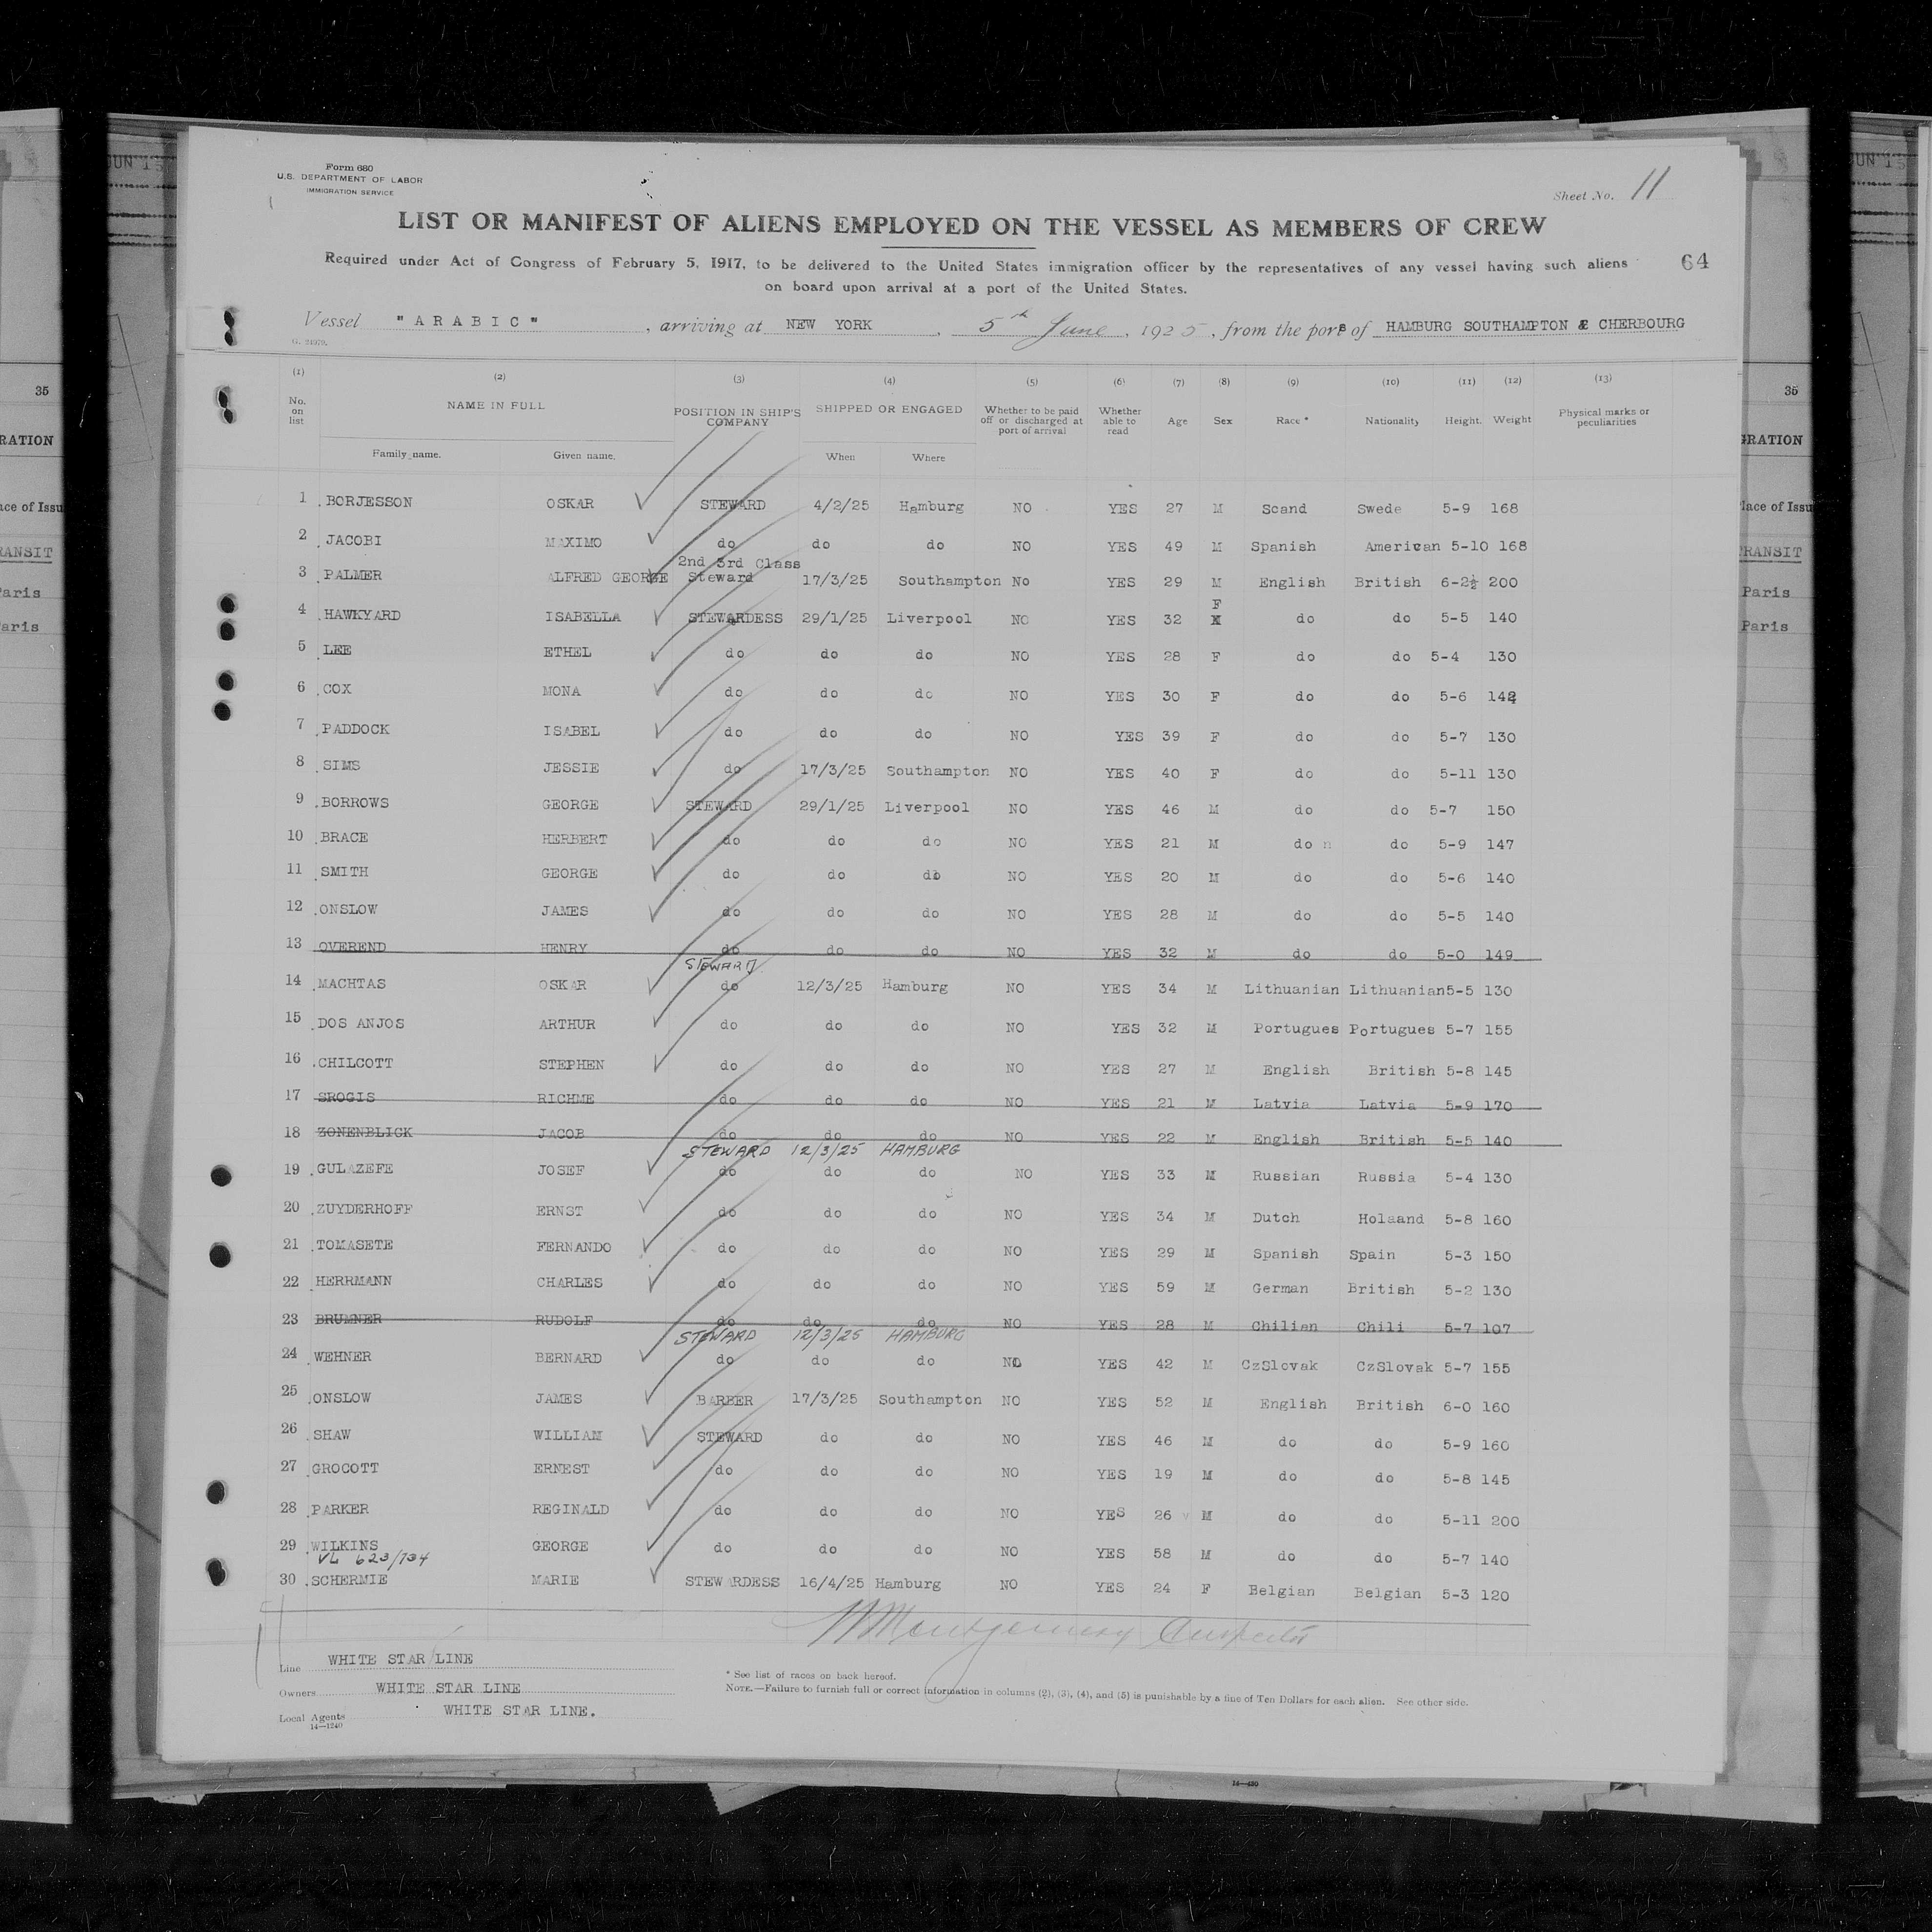 Form 680
U.S. DEPARTMENT OF LABOR
IMMIGRATION SERVICE
Sheet No. 11
LIST OR MANIFEST OF ALIENS EMPLOYED ON THE VESSEL AS MEMBERS OF CREW
Required under Act of Congress of February 5, 1917, to be delivered to the United States immigration officer by the representatives of any vessel having such aliens
64
on board upon arrival at a port of the United States.
Vessel "ARABIC", arriving at NEW YORK, 5th June, 1925, from the ports of HAMBURG SOUTHAMPTON & CHERBOURG
(1) (2) (3) (4) (5) (6) (7) (8) (9) (10) (11) (12) (13)
No. on list NAME IN FULL POSITION IN SHIP'S COMPANY SHIPPED OR ENGAGED Whether to be paid off or discharged at port of arrival Whether able to read Age Sex Race * Nationality Height. Weight Physical marks or peculiarities
Family name. Given name. When Where
1 BORJESSON OSKAR STEWARD 4/2/25 Hamburg NO YES 27 M Scand Swede 5-9 168
2 JACOBI MAXIMO do do do NO YES 49 M Spanish American 5-10 168
2nd 3rd Class
3 PALMER ALFRED GEORGE Steward 17/3/25 Southampton No YES 29 M English British 6-2½ 200
F
4 HAWKYARD ISABELLA STEWARDESS 29/1/25 Liverpool NO YES 32 X do do 5-5 140
5 LEE ETHEL do do do NO YES 28 F do do 5-4 130
6 COX MONA do do do NO YES 30 F do do 5-6 142
7 PADDOCK ISABEL do do do NO YES 39 F do do 5-7 130
8 SIMS JESSIE do 17/3/25 Southampton NO YES 40 F do do 5-11 130
9 BORROWS GEORGE STEWARD 29/1/25 Liverpool NO YES 46 M do do 5-7 150
10 BRACE HERBERT do do do NO YES 21 M do n do 5-9 147
11 SMITH GEORGE do do do NO YES 20 M do do 5-6 140
12 ONSLOW JAMES do do do NO YES 28 M do do 5-5 140
13 OVEREND HENRY do do do NO YES 32 M do do 5-0 149
STEWARD
14 MACHTAS OSKAR do 12/3/25 Hamburg NO YES 34 M Lithuanian Lithuanian 5-5 130
15 DOS ANJOS ARTHUR do do do NO YES 32 M Portugues Portugues 5-7 155
16 CHILCOTT STEPHEN do do do NO YES 27 M English British 5-8 145
17 SROGIS RICHME do do do NO YES 21 M Latvia Latvia 5-9 170
18 ZONENBLICK JACOB do do do NO YES 22 M English British 5-5 140
STEWARD 12/3/25 HAMBURG
19 GULAZEFE JOSEF do do do NO YES 33 M Russian Russia 5-4 130
20 ZUYDERHOFF ERNST do do do NO YES 34 M Dutch Holaand 5-8 160
21 TOMASETE FERNANDO do do do NO YES 29 M Spanish Spain 5-3 150
22 HERRMANN CHARLES do do do NO YES 59 M German British 5-2 130
23 BRUMNER RUDOLF do do do NO YES 28 M Chilian Chili 5-7 107
STEWARD 12/3/25 HAMBURG
24 WEHNER BERNARD do do do NO YES 42 M CzSlovak CzSlovak 5-7 155
25 ONSLOW JAMES BARBER 17/3/25 Southampton NO YES 52 M English British 6-0 160
26 SHAW WILLIAM STEWARD do do NO YES 46 M do do 5-9 160
27 GROCOTT ERNEST do do do NO YES 19 M do do 5-8 145
28 PARKER REGINALD do do do NO YES 26 M do do 5-11 200
29 WILKINS GEORGE do do do NO YES 58 M do do 5-7 140
VL 623/134
30 SCHERMIE MARIE STEWARDESS 16/4/25 Hamburg NO YES 24 F Belgian Belgian 5-3 120
Montgomery
Line WHITE STAR LINE
Owners WHITE STAR LINE
Local Agents WHITE STAR LINE.
14—1240
* See list of races on back hereof.
NOTE.—Failure to furnish full or correct information in columns (2), (3), (4), and (5) is punishable by a fine of Ten Dollars for each alien. See other side.
35
Paris
Paris